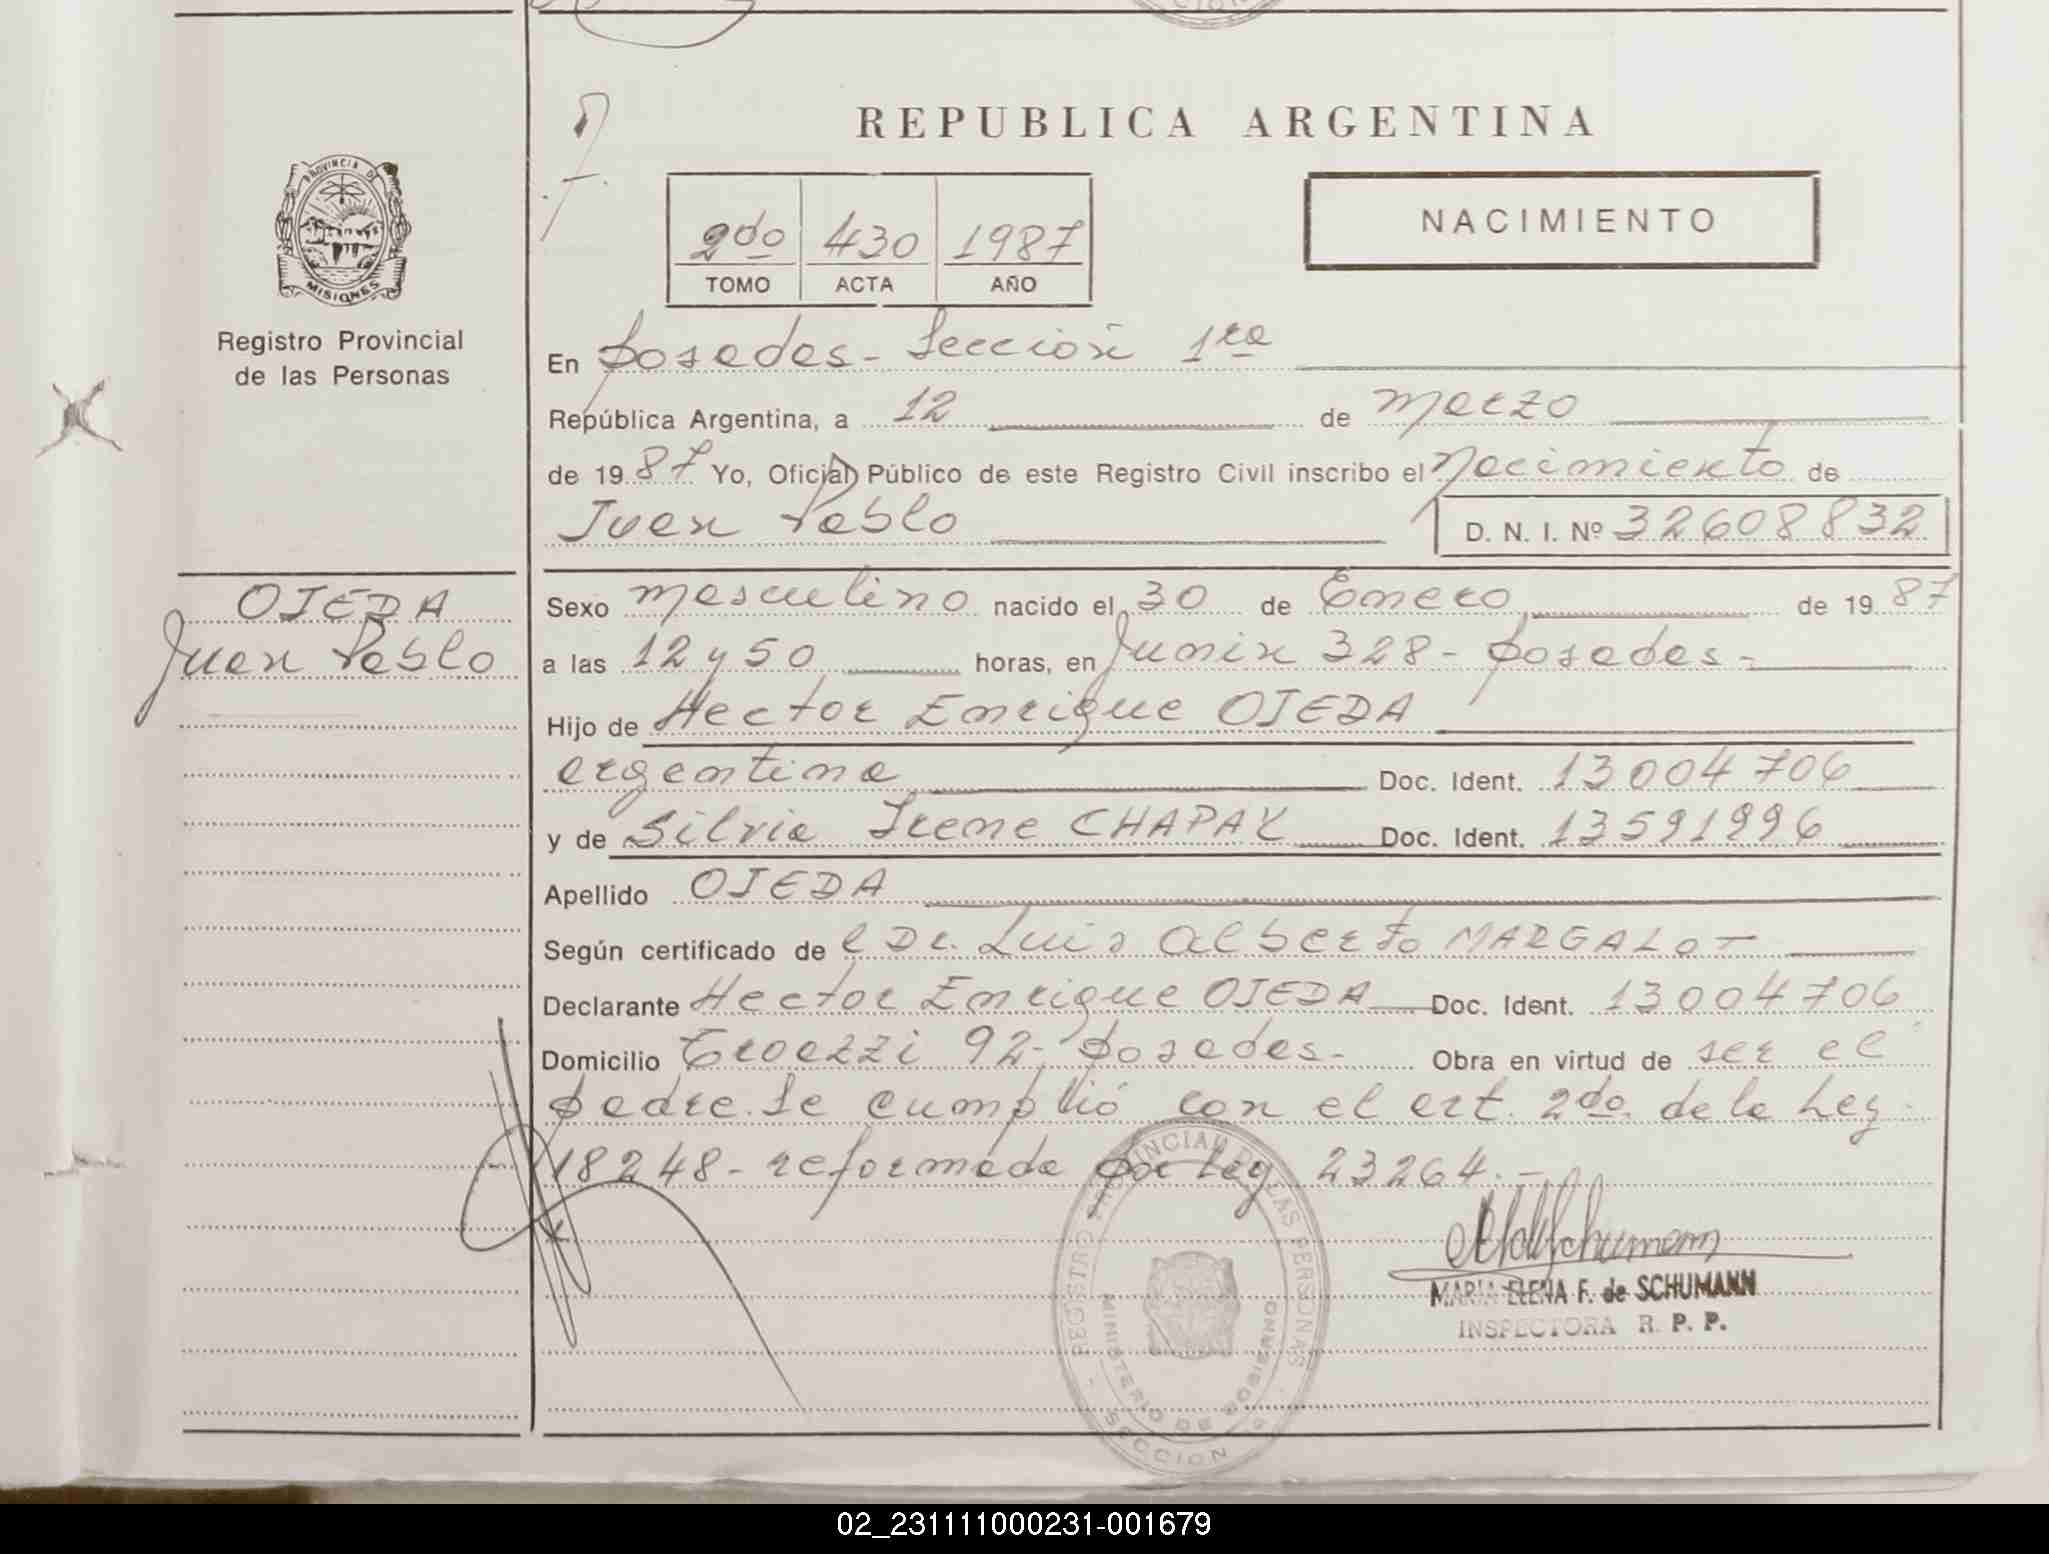 REPUBLICA ARGENTINA
PROVINCIA DE
MISIONES
Registro Provincial
de las Personas
2do 430 1987
TOMO ACTA AÑO
NACIMIENTO
En Posadas - Sección 1ra
República Argentina, a 12 de Marzo
de 1987 Yo, Oficial Público de este Registro Civil inscribo el Nacimiento de
Juan Pablo D. N. I. Nº 32608832
OJEDA
Juan Pablo
Sexo masculino nacido el 30 de Enero de 1987
a las 12 y 50 horas, en Junin 328 - Posadas -
Hijo de Hector Enrique OJEDA
argentina Doc. Ident. 13004706
y de Silvia Irene CHAPAY Doc. Ident. 13591996
Apellido OJEDA
Según certificado de l Dr. Luis Alberto MARGALOT
Declarante Hector Enrique OJEDA Doc. Ident. 13004706
Domicilio Troazzi 92 - Posadas - Obra en virtud de ser el
padre. Se cumplió con el art. 2do. de la Ley
18248 - reformada por Ley 23264. -
REGISTRO PROVINCIAL DE LAS PERSONAS
MINISTERIO DE GOBIERNO
SECCION
MARIA ELENA F. de SCHUMANN
INSPECTORA R. P. P.
02_231111000231-001679